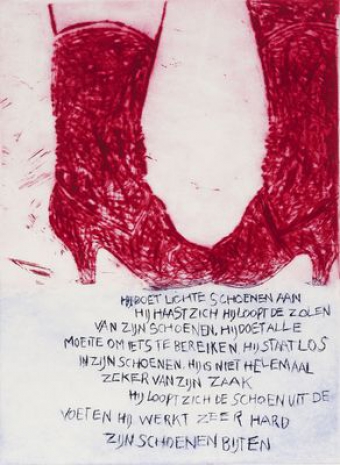 HIJ DOET LICHTE SCHOENEN AAN
HIJ HAAST ZICH HIJ LOOPT DE ZOLEN
VAN ZIJN SCHOENEN, HIJ DOET ALLE
MOEITE OM IETS TE BEREIKEN, HIJ STAAT LOS
IN ZIJN SCHOENEN, HIJ IS NIET HELEMAAL
ZEKER VAN ZIJN ZAAK
HIJ LOOPT ZICH DE SCHOEN UIT DE
VOETEN HIJ WERKT ZEER HARD
ZIJN SCHOENEN BIJTEN